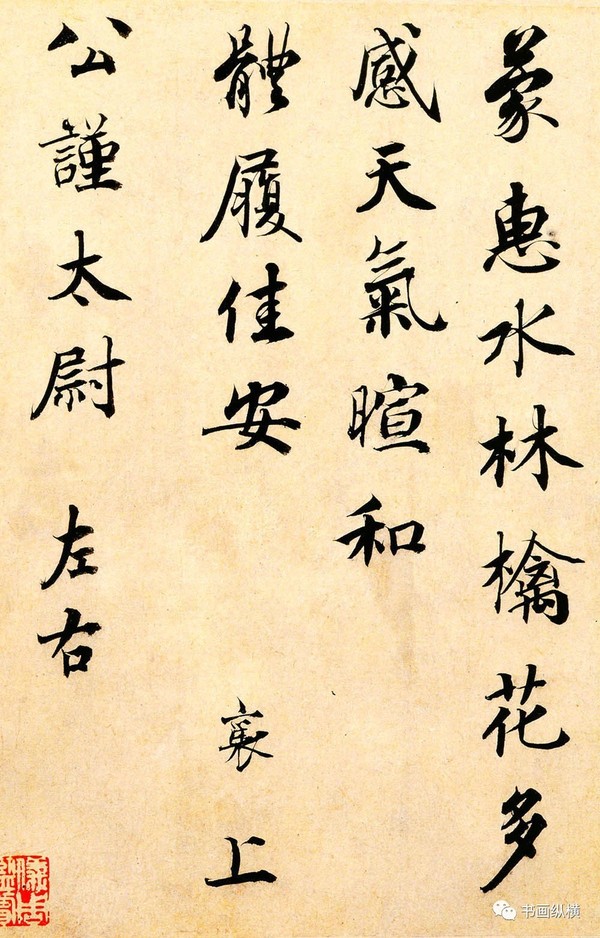 蒙惠水林檎花多
感天氣暄和
體履佳安 襄上
公謹太尉 左右
书画纵横